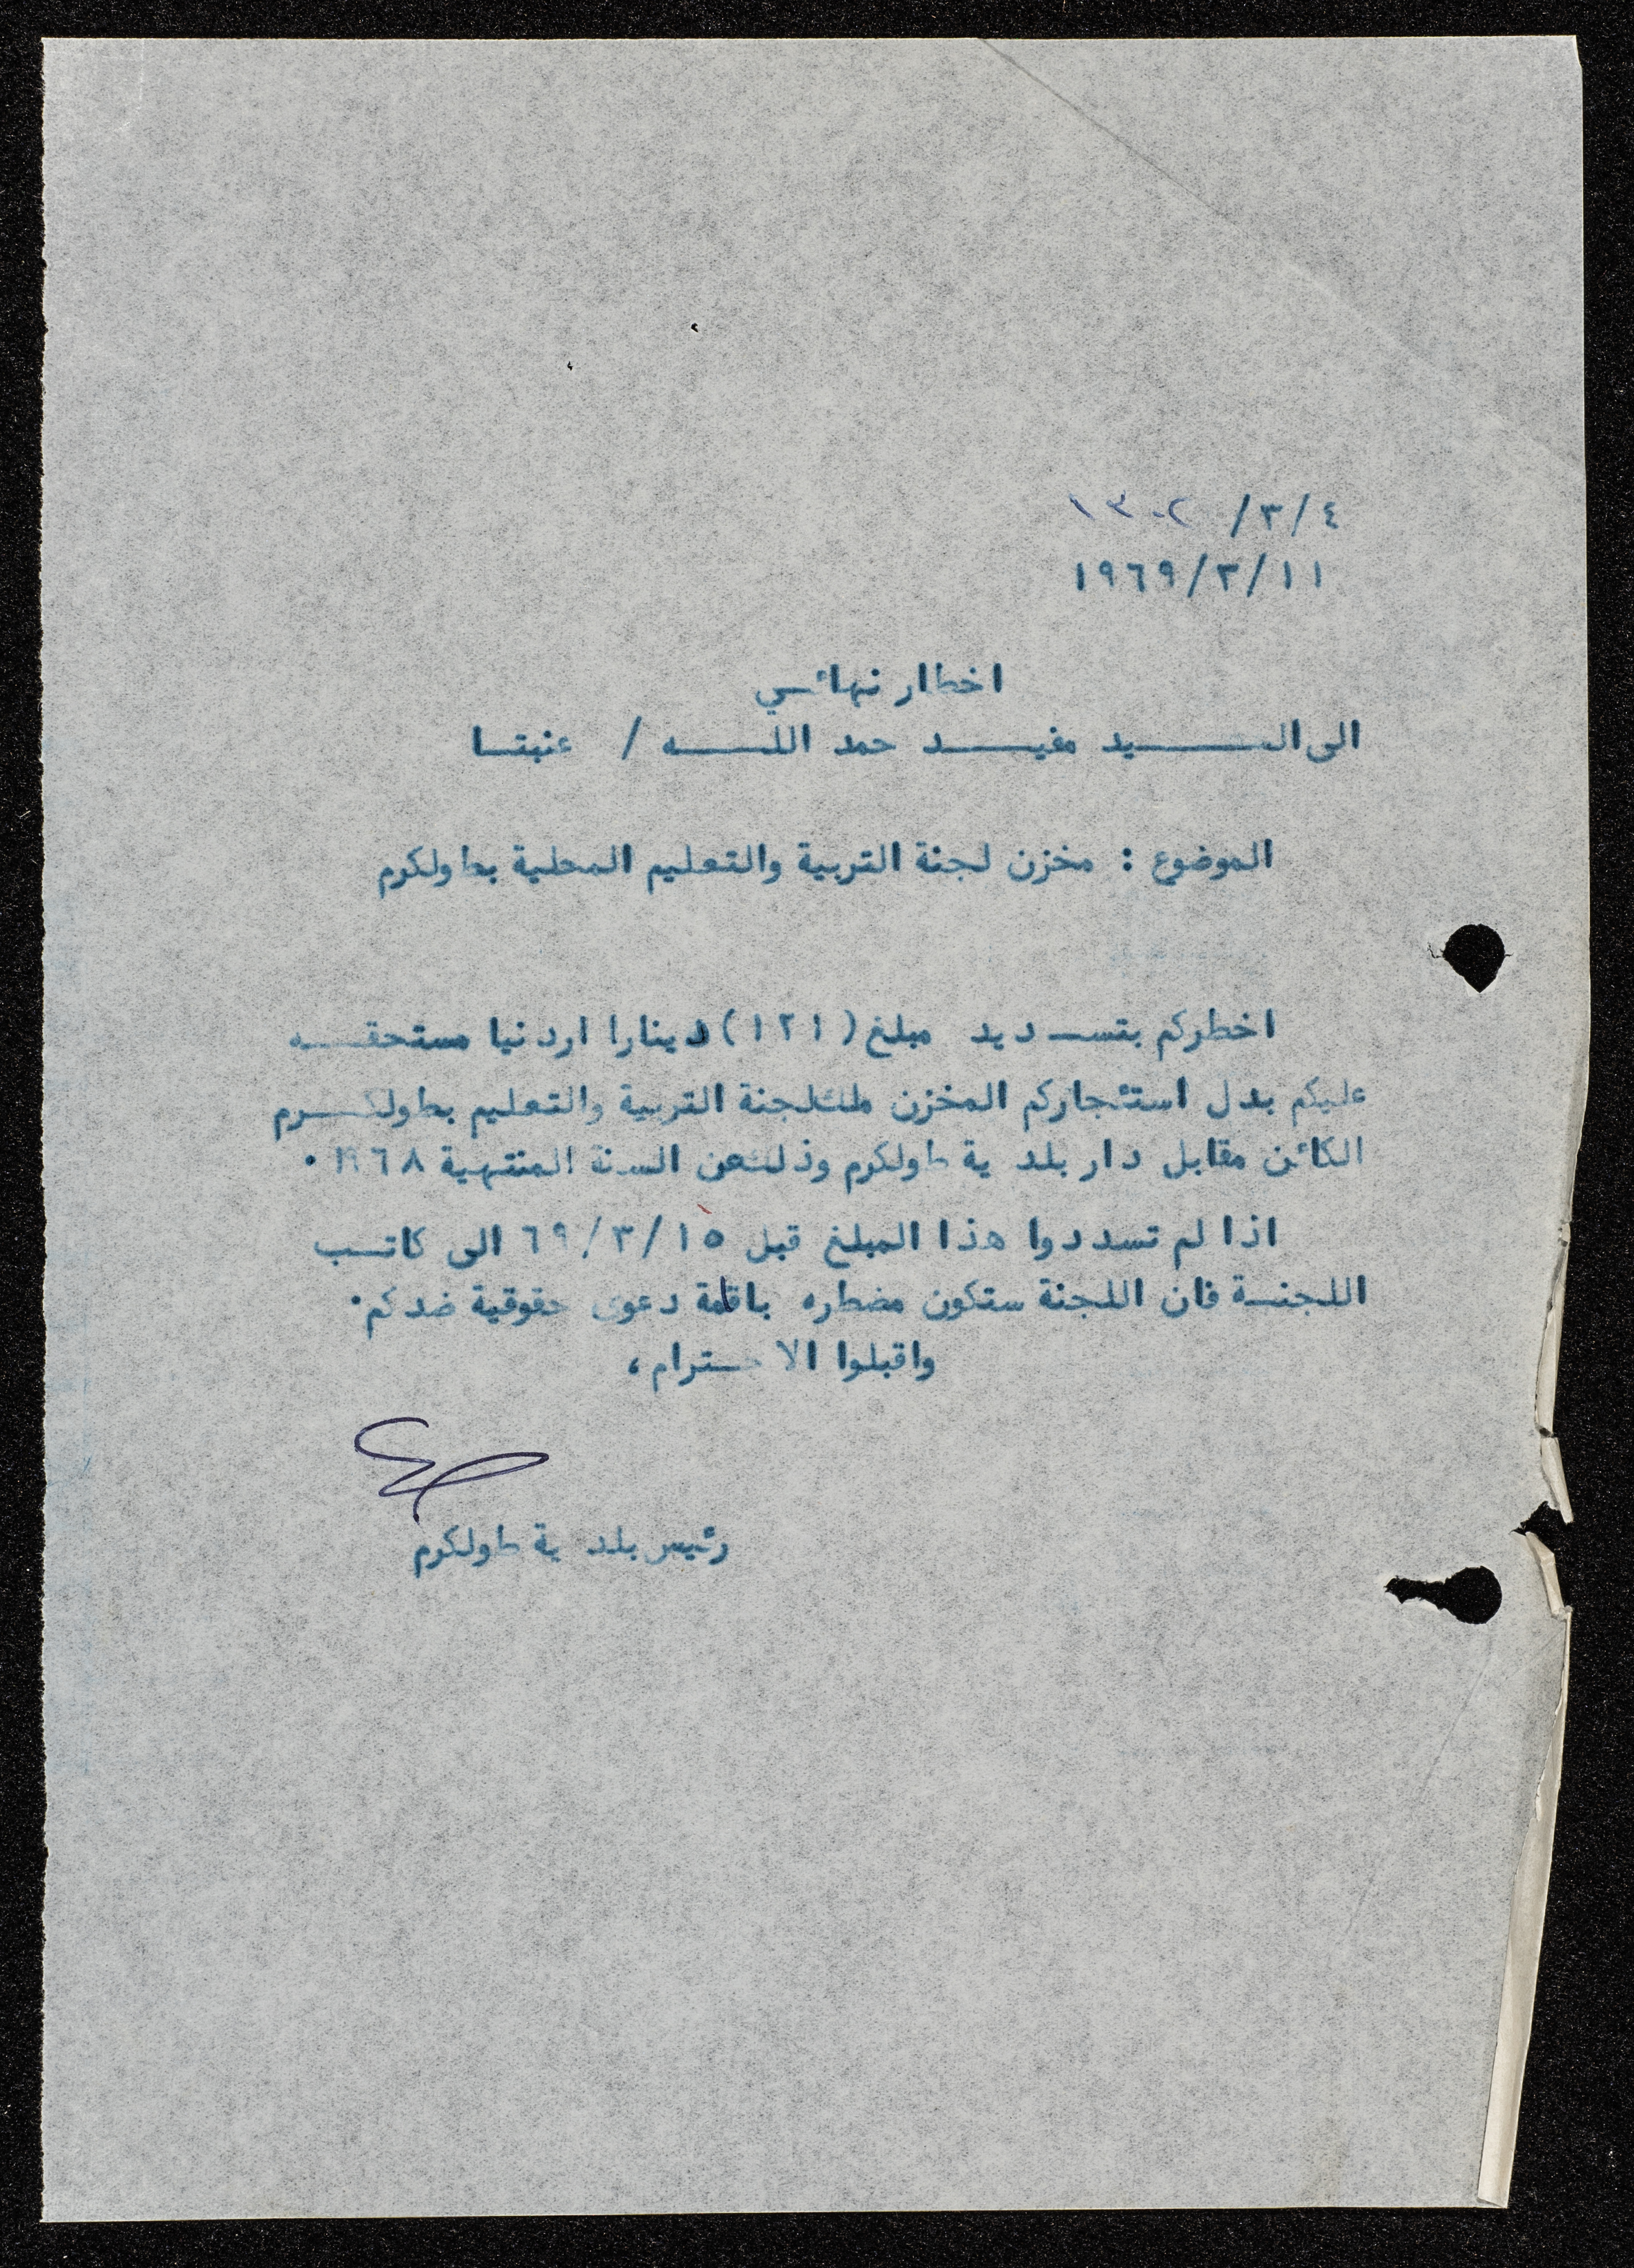 ٤/٣/ ١٣٠٢
١٩٦٩/٣/١١
اخطار نهائي
الى السيد مفيد حمد الله / عنبتا
الموضوع : مخزن لجنة التربية والتعليم المحلية بطولكرم
اخطركم بتسديد مبلغ (١٢١) دينارا اردنيا مستحقه
عليكم بدل استئجاركم المخزن ملك لجنة التربية والتعليم بطولكرم
الكائن مقابل دار بلدية طولكرم وذلك عن السنة المنتهية ١٩٦٨ ٠
اذا لم تسددوا هذا المبلغ قبل ٦٩/٣/١٥ الى كاتب
اللجنة فان اللجنة ستكون مضطره باقامة دعوى حقوقية ضدكم٠
واقبلوا الاحترام،
رئيس بلدية طولكرم